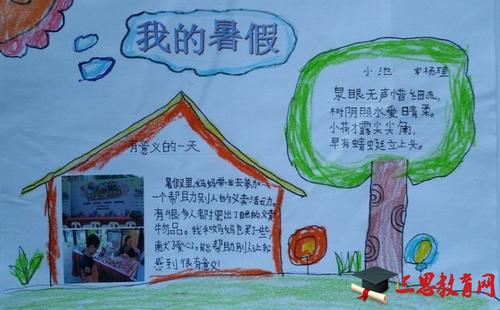 我的暑假
小池 宋杨理
泉眼无声惜细流，
树阴照水爱晴柔。
小荷才露尖尖角，
早有蜻蜓立上头。
有意义的一天
暑假里,妈妈带
一个帮助别人的义卖活动。
有很多人都拿出了自己的义
卖物品。我和妈妈也买了一些,
献了爱心。能帮助别人让我
感到很有意义!
三思教育网